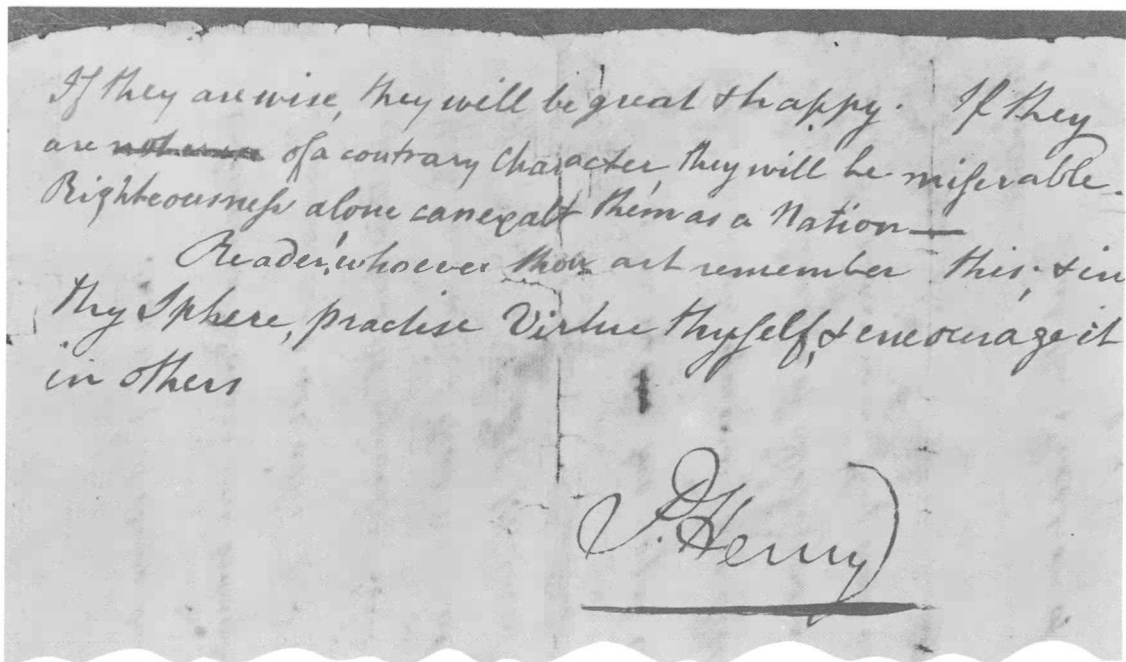 If they are wise, they will be great & happy. If they
are of a contrary Character they will be miserable.
Righteousness alone can exalt them as a Nation—
Reader! whoever thou art remember this; & in
thy Sphere, practise Virtue thyself, & encourage it
in others
P. Henry